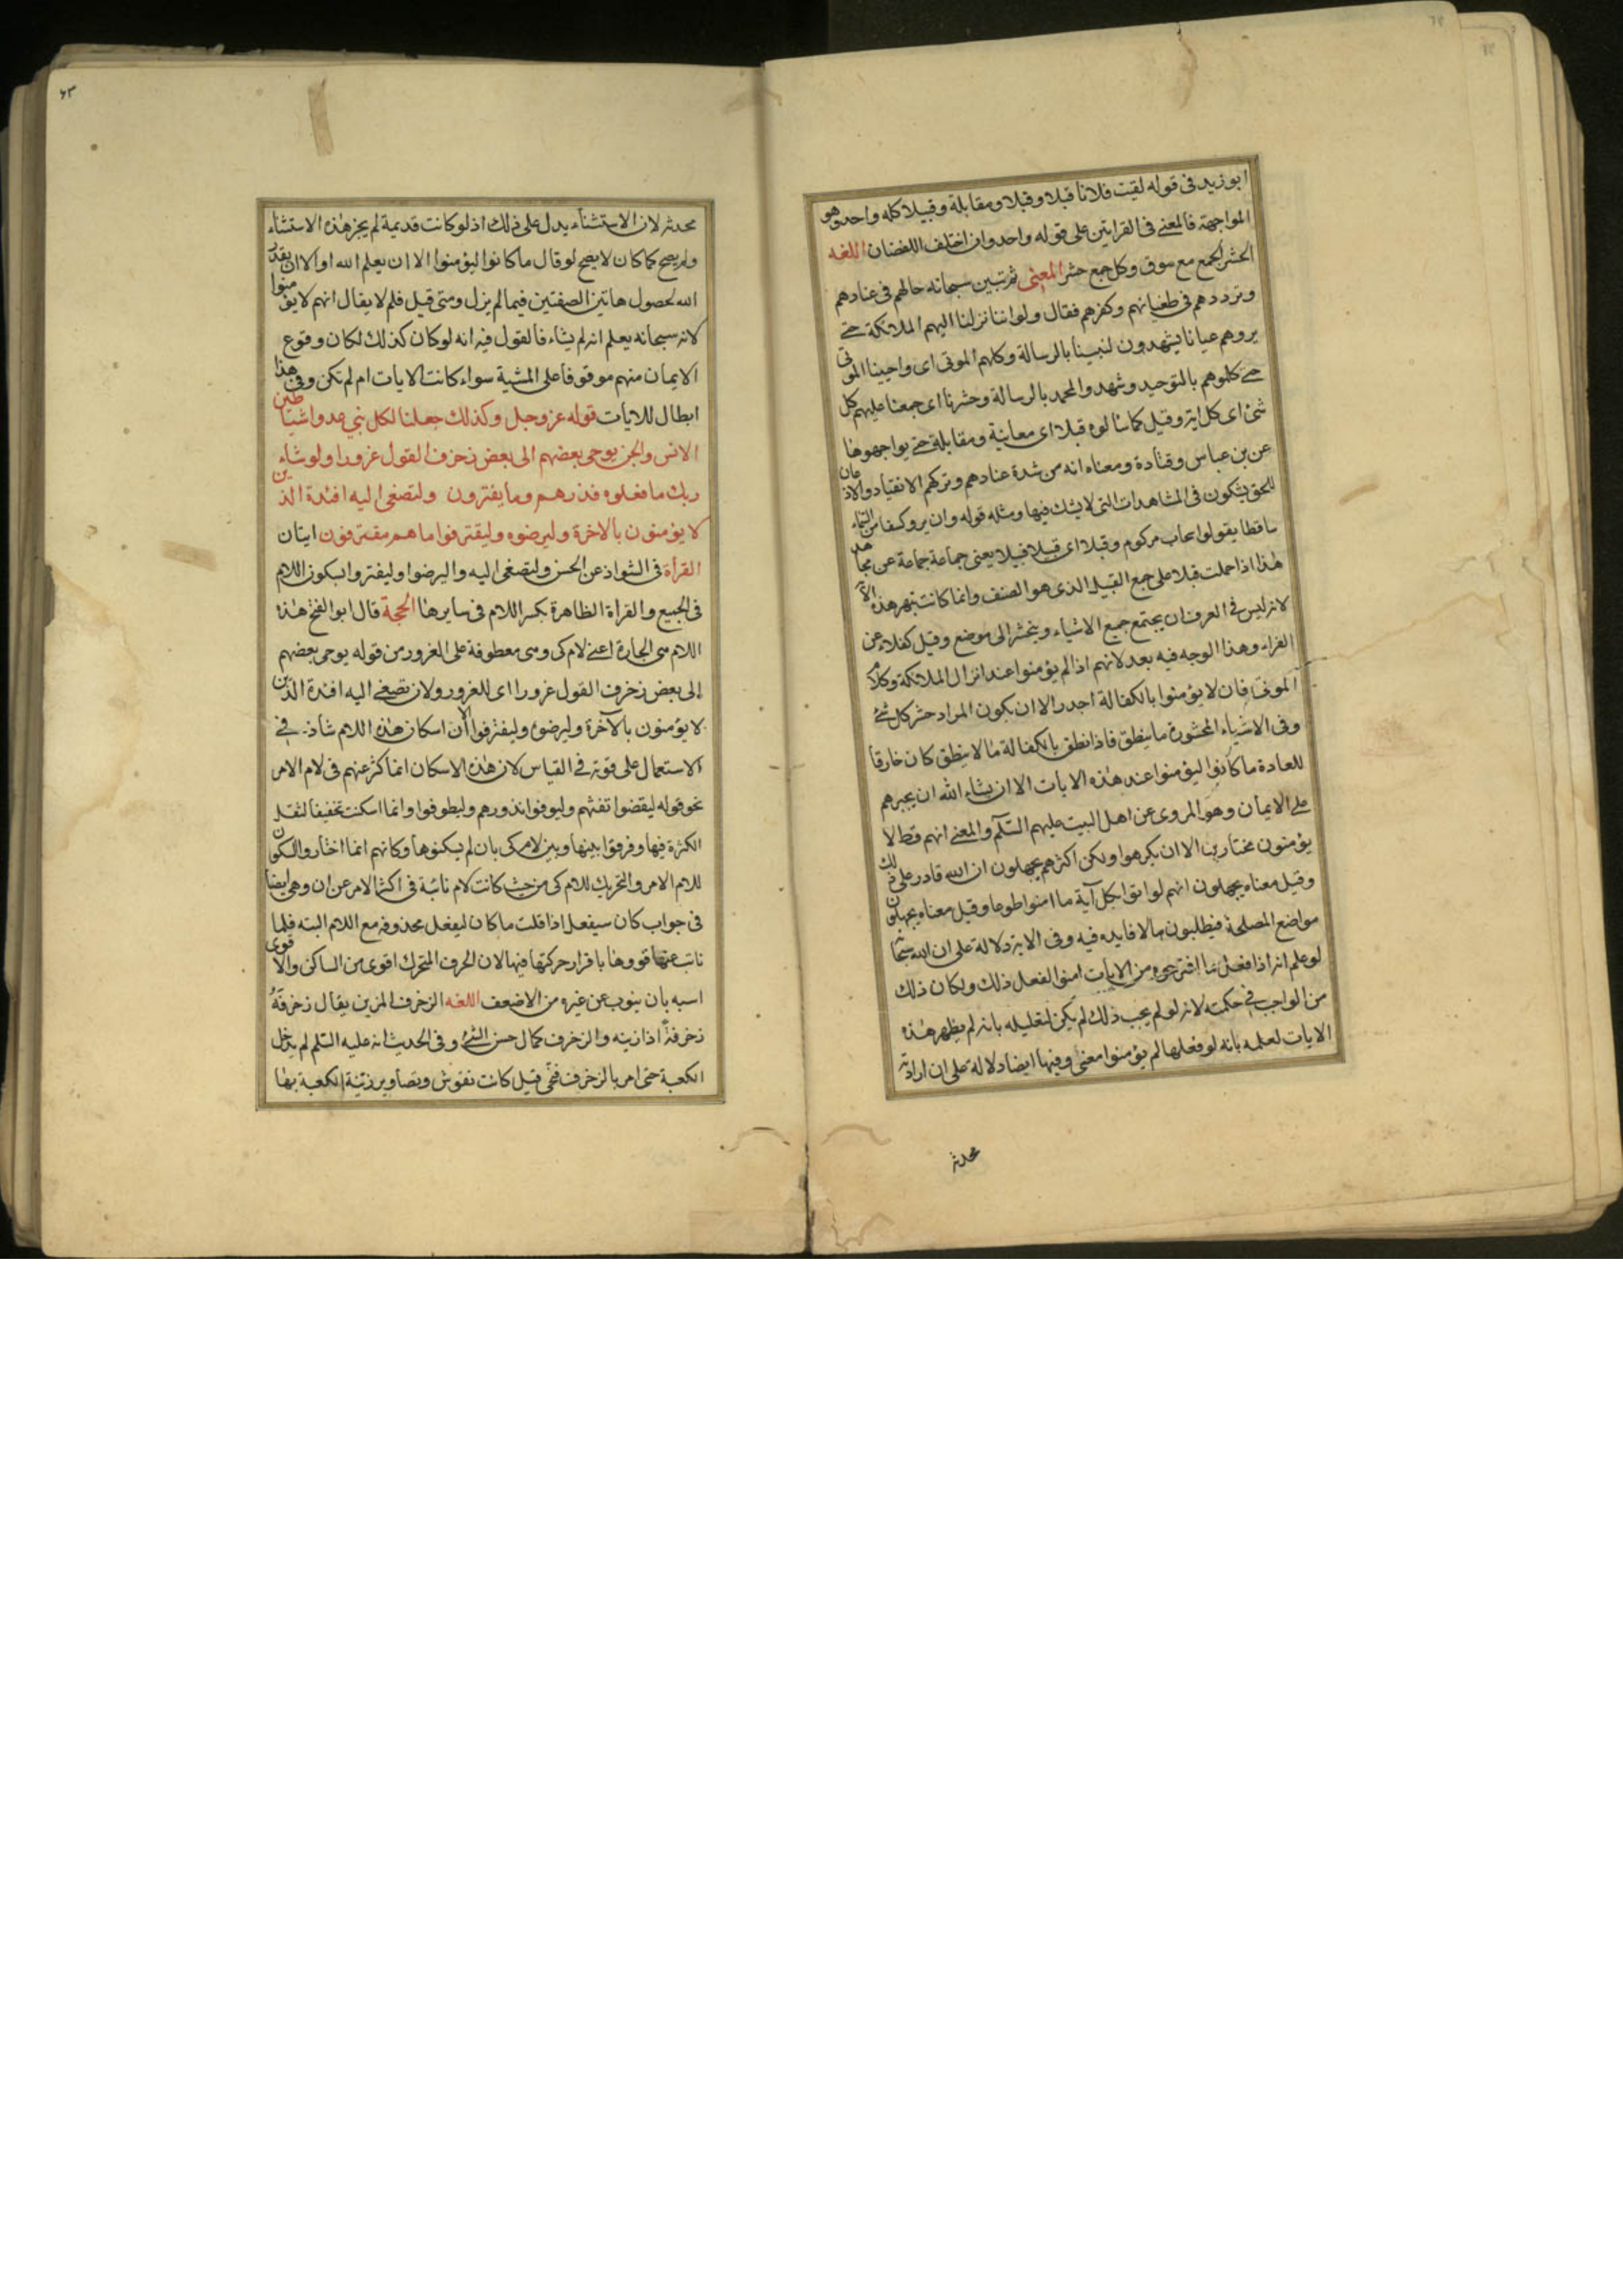 ابوزيد فى قوله لقيت فلانا قبلا وقبلا ومقابلة وقبيلا كله واحد وهو
المواجهة فالمعنى فى القرايتين على قوله واحد وان اختلف اللفضان اللغه
الحشر الجمع مع سوق وكل جمع حشر المعنى ثم بين سبحانه حالهم فى عنادهم
وترددهم فى طغيانهم وكفرهم فقال ولو اننا نزلنا اليهم الملائكة حتى
يروهم عيانا يشهدون لنبينا بالرسالة وكلهم الموتى اى واحيينا الموتى
حتى كلموهم بالتوحيد وشهدوا لمحمد بالرسالة وحشرنا اى جمعنا عليهم كل
شئ اى كل اية وقيل كما سالوه قبلا اى معاينة ومقابلة حتى يواجهوها
عن بن عباس وقتادة ومعناه انه من شدة عنادهم وتركهم الانقياد والاذعان
للحق يشكون فى المشاهدات التى لا يشك فيها ومثله قوله وان يروا كسفا من السماء
ساقطا يقولوا سحاب مركوم وقبلا اى قبيلا قبيلا يعنى جماعة جماعة عن مجاهد
هذا اذا حملت قبلا على جمع القبيل الذى هو الصنف وانما كانت تبهر هذه الآية
لانه ليس فى العرف ان يجتمع جميع الاشياء وينحشر الى موضع وقيل كفلاء عن
الفراء وهذا الوجه فيه بعد لانهم اذا لم يؤمنوا عند انزال الملائكة وكلام
الموتى فان لا يؤمنوا بالكفالة اجدر الا ان يكون المراد حشر كل شئ
وفى الاشياء المحشورة ما ينطق فاذا نطق بالكفالة ما لا ينطق كان خارقا
للعادة ما كانوا ليؤمنوا عند هذه الايات الا ان يشاء الله ان يجبرهم
على الايمان وهو المروى عن اهل البيت عليهم السلم والمعنى انهم قط لا
يؤمنون مختارين الا ان يكرهوا ولكن اكثرهم يجهلون ان الله قادر على ذلك
وقيل معناه يجهلون انهم لو اتوا بكل آية ما امنوا طوعا وقيل معناه يجهلون
مواضع المصلحة فيطلبون ما لا فايده فيه وفى الاية دلالة على ان الله سبحانه
لو علم انه اذا فعل ما اقترحوه من الايات امنوا لفعل ذلك ولكان ذلك
من الواجب فى حكمته لانه لو لم يجب ذلك لم يكن لتعليله بانه لم يظهر هذه
الايات لعلمه بانه لو فعلها لم يؤمنوا معنى وفيها ايضا دلالة على ان ارادته
محدثه
٦٣
محدثه لان الاستثناء يدل على ذلك اذ لو كانت قديمة لم يجز هذه الاستثناء
ولم يصح كما كان لا يصح لو قال ما كانوا ليؤمنوا الا ان يعلم الله او الا ان يقدر
الله لحصول هاتين الصفتين فيما لم يزل ومتى قيل فلم لا يقال انهم لا يؤمنوا
لانه سبحانه يعلم انه لم يشاء فالقول فيه انه لو كان كذلك لكان وقوع
الايمان منهم موقوفا على المشية سواء كانت الايات ام لم تكن وفى هذا
ابطال للايات قوله عز وجل وكذلك جعلنا لكل نبي عدوا شياطين
الانس والجن يوحى بعضهم الى بعض زخرف القول غرورا ولو شاء
ربك ما فعلوه فذرهم وما يفترون ولتصغى اليه افئدة الذين
لا يؤمنون بالاخرة وليرضوه وليقترفوا ما هم مقترفون ايتان
القرأة فى الشواذ عن الحسن ولتصغى اليه واليرضوا وليفتروا بسكون اللام
فى الجميع والقراة الظاهرة بكسر اللام فى سايرها الحجة قال ابو الفتح هذه
اللام هى الجارة اعنى لام كى وهى معطوفة على الغرور من قوله يوحى بعضهم
إلى بعض زخرف القول غرورا اى للغرور ولان تصغى اليه افئدة الذين
لا يؤمنون بالآخرة وليرضوه وليقترفوا الا ان اسكان هذه اللام شاذ فى
الاستعمال على قوته فى القياس لان هذه الاسكان انما كثر عنهم فى لام الامر
نحو قوله ليقضوا تفثهم وليوفوا نذورهم وليطوفوا وانما اسكنت تخفيفا لثقل
الكثرة فيها وفرقوا بينها وبين لام كى بان لم يسكنوها وكانهم انما اختاروا السكون
للام الامر والتحريك للام كى من حيث كانت لام نائبة فى اكثر الامر عن ان وهى ايضا
فى جواب كان سيفعل اذا قلت ما كان ليفعل محذوفه مع اللام البته فلما
نابت عنها قووها باقرار حركتها فيها لان الحرف المتحرك اقوى من الساكن والاقوى
اسبه بان ينوب عن غيره من الاضعف اللغه الزخرف المزين يقال زخرفَهُ
زخرفةً اذا زينه والزخرف كمال حسن الشئ وفى الحديث انه عليه السلم لم يدخل
الكعبة حتى امر بالزخرف فنحّى قيل كانت نقوش وتصاوير زينة الكعبة بها